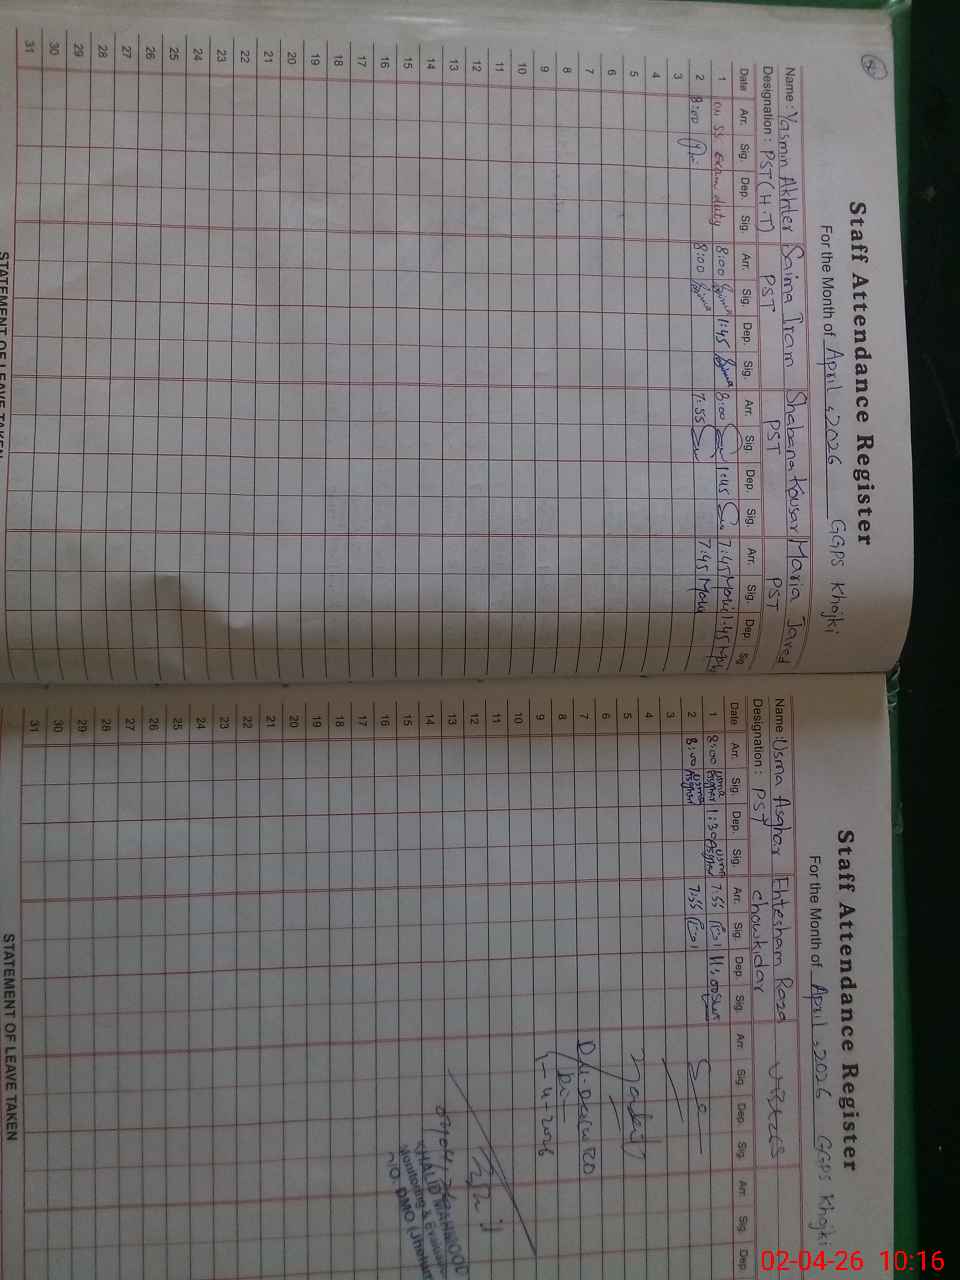 Staff Attendance Register
For the Month of April, 2026 GGPS Khojki
Name: Yasmin Akhter Saima Iram Shabana Kousar Maria Javed
Designation: PST (H.T) PST PST PST
Date Arr. Sig. Dep. Sig. Arr. Sig. Dep. Sig. Arr. Sig. Dep. Sig. Arr. Sig. Dep. Sig.
1 on SS exam duty 8:00 1:45 8:00 1:45 7:45 1:45
2 8:00 8:00 7:55 7:45
3
4
5
6
7
8
9
10
11
12
13
14
15
16
17
18
19
20
21
22
23
24
25
26
27
28
29
30
31
STATEMENT OF LEAVE TAKEN
Staff Attendance Register
For the Month of April, 2026 GGPS Khojki
Name: Usma Asghar Ehtesham Raza
Designation: PST chowkidar
Date Arr. Sig. Dep. Sig. Arr. Sig. Dep. Sig. Arr. Sig. Dep. Sig. Arr. Sig. Dep.
1 8:00 Usma Asghar 1:30 Usma Asghar 7:55
2 8:00 Usma Asghar 7:55
3
4
5
6
7
8
9
10
11
12
13
14
15
16
17
18
19
20
21
22
23
24
25
26
27
28
29
30
31
KHALID MAHMOOD
Monitoring & Evaluation
O/O DMO (Jhelum
STATEMENT OF LEAVE TAKEN
02-04-26 10:16